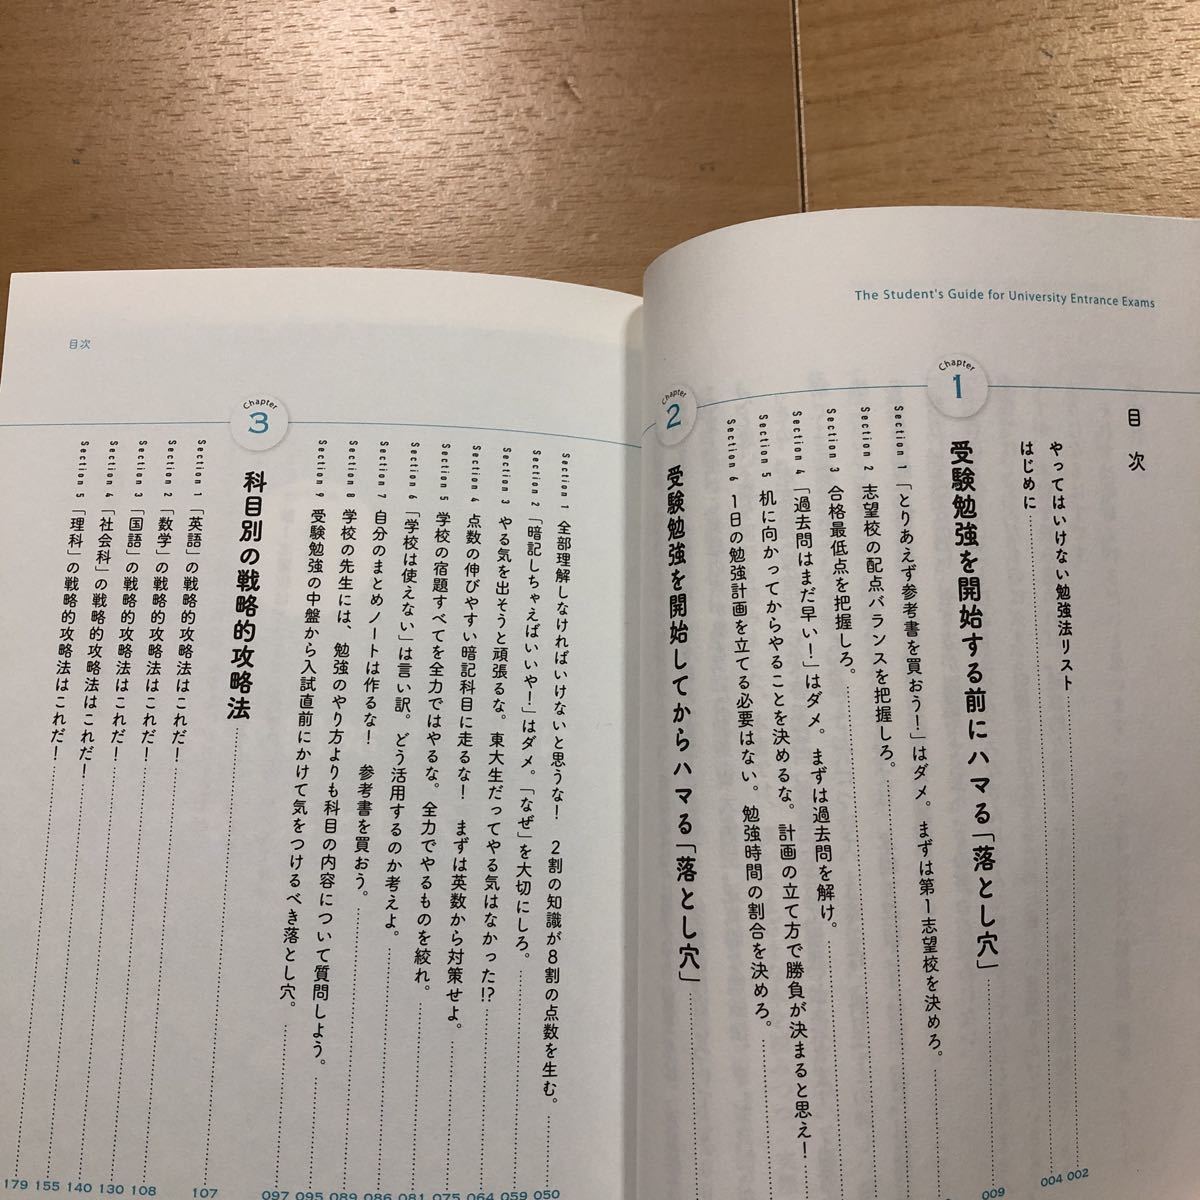 The Student's Guide for University Entrance Exams
目次
やってはいけない勉強法リスト 002
はじめに 004
Chapter 1
受験勉強を開始する前にハマる「落とし穴」 009
Section 1 「とりあえず参考書を買おう!」はダメ。まずは第1志望校を決めろ。
Section 2 志望校の配点バランスを把握しろ。
Section 3 合格最低点を把握しろ。
Section 4 「過去問はまだ早い!」はダメ。まずは過去問を解け。
Section 5 机に向かってからやることを決めるな。計画の立て方で勝負が決まると思え!
Section 6 1日の勉強計画を立てる必要はない。勉強時間の割合を決めろ。
Chapter 2
受験勉強を開始してからハマる「落とし穴」
目次
Section 1 全部理解しなければいけないと思うな! 2割の知識が8割の点数を生む。 050
Section 2 「暗記しちゃえばいいや!」はダメ。「なぜ」を大切にしろ。 059
Section 3 やる気を出そうと頑張るな。東大生だってやる気はなかった!? 064
Section 4 点数の伸びやすい暗記科目に走るな! まずは英数から対策せよ。 075
Section 5 学校の宿題すべてを全力ではやるな。全力でやるものを絞れ。 081
Section 6 「学校は使えない」は言い訳。どう活用するのか考えよ。 086
Section 7 自分のまとめノートは作るな! 参考書を買おう。 089
Section 8 学校の先生には、勉強のやり方よりも科目の内容について質問しよう。 095
Section 9 受験勉強の中盤から入試直前にかけて気をつけるべき落とし穴。 097
Chapter 3
科目別の戦略的攻略法 107
Section 1 「英語」の戦略的攻略法はこれだ! 108
Section 2 「数学」の戦略的攻略法はこれだ! 130
Section 3 「国語」の戦略的攻略法はこれだ! 140
Section 4 「社会科」の戦略的攻略法はこれだ! 155
Section 5 「理科」の戦略的攻略法はこれだ! 179